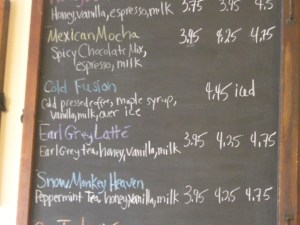 Honey, vanilla, espresso, milk 3.75 3.95 4.5
Mexican Mocha 3.95 4.25 4.75
Spicy Chocolate Mix,
espresso, milk
Cold Fusion 4.45 iced
Cold pressed coffee, maple syrup,
Vanilla, milk, over ice
Earl Grey Latte 3.95 4.25 4.75
Earl Grey tea, honey, vanilla, milk
Snow Monkey Heaven
Peppermint Tea, honey, vanilla, milk 3.95 4.25 4.75